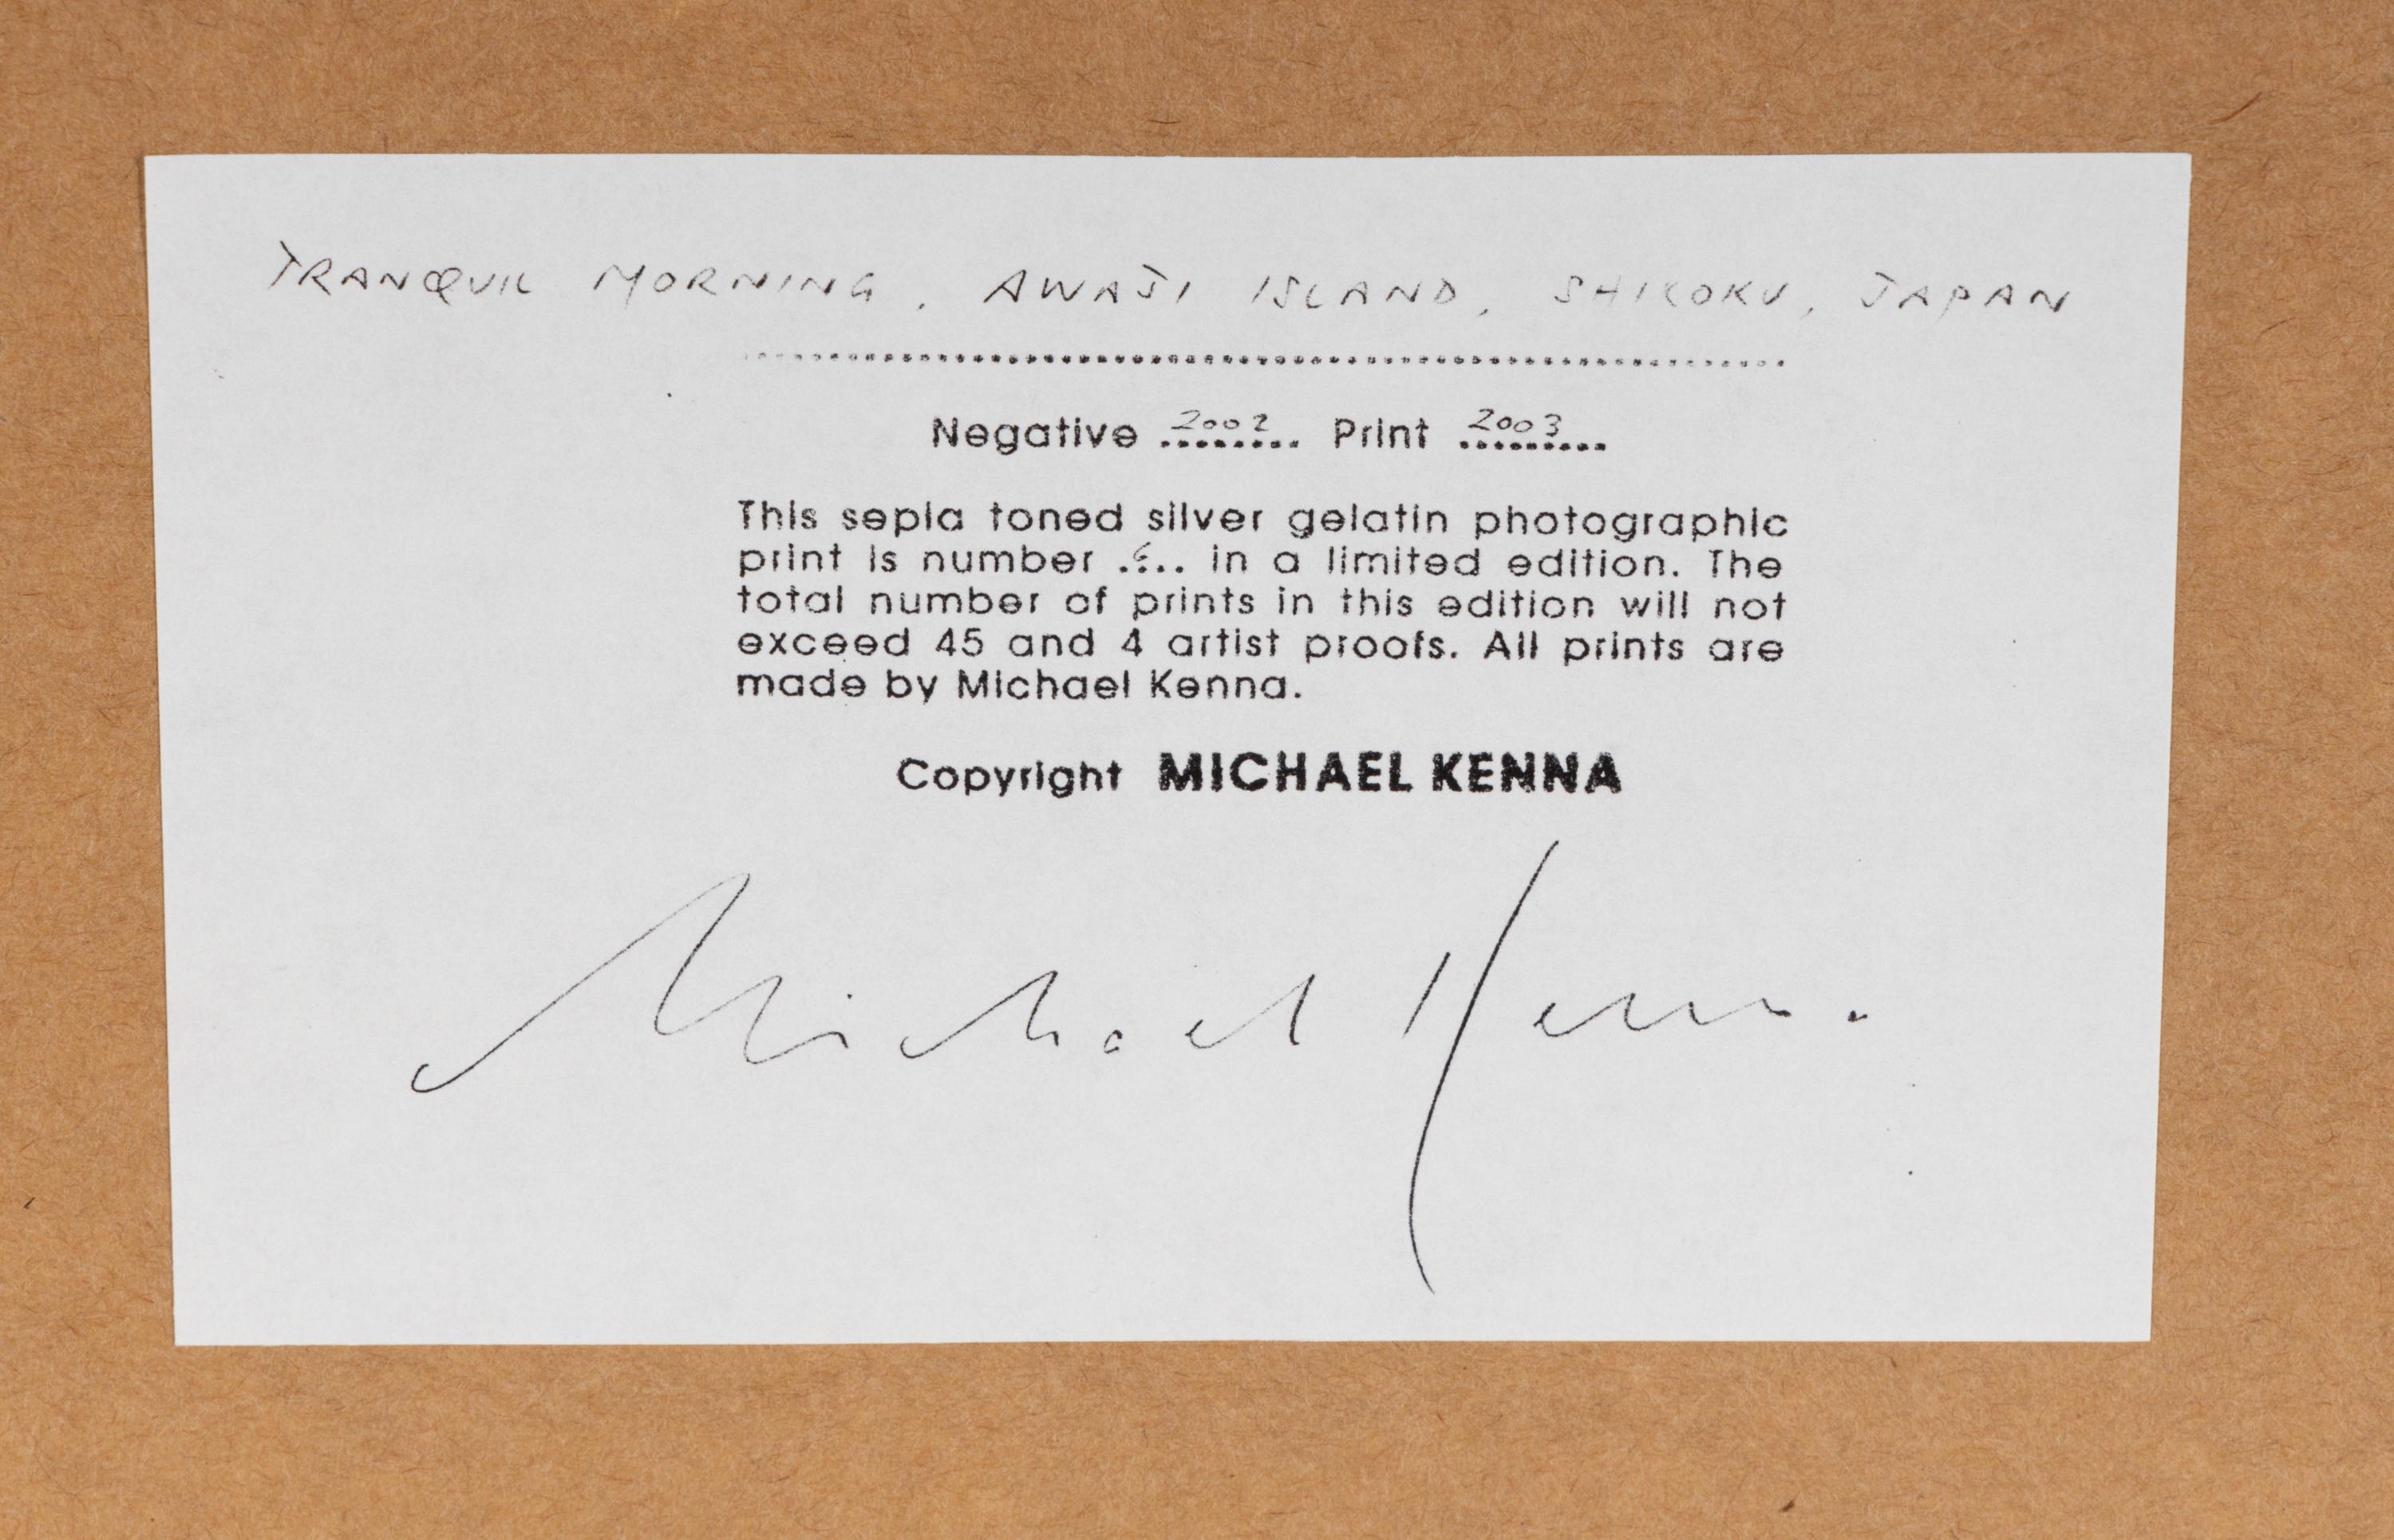 TRANQUIL MORNING, AWAJI ISLAND, SHIKOKU, JAPAN
Negative 2002 Print 2003
This sepia toned silver gelatin photographic
print is number 6 in a limited edition. The
total number of prints in this edition will not
exceed 45 and 4 artist proofs. All prints are
made by Michael Kenna.
Copyright MICHAEL KENNA
Michael Kenna